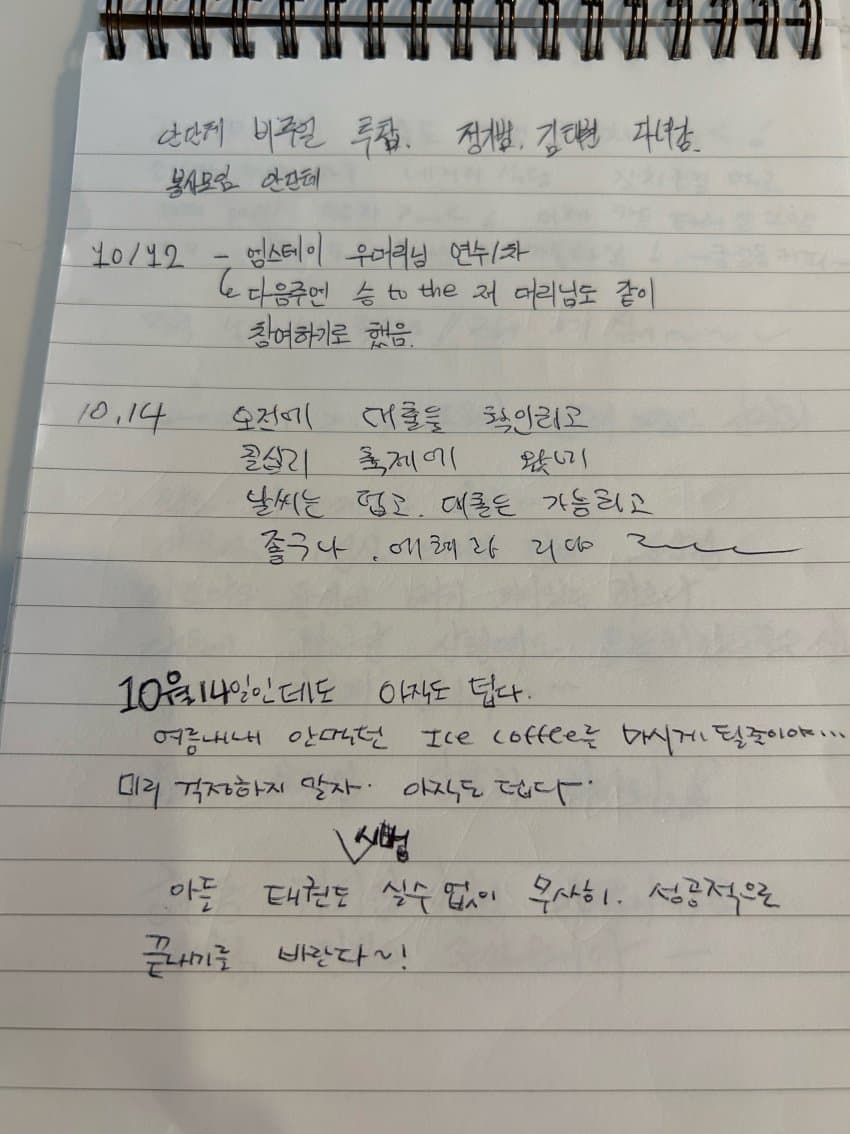 안단테 비주얼 투탑. 정기범, 김태현 다녀감.
봉사모임 안단테
10/12 - 엄스테이 우머리님 연수1차
다음주엔 승 to the 저 머리님도 같이
참여하기로 했음.
10.14 오전에 대출을 확인하고
콜십리 축제에 왔네
날씨는 덥고. 대출은 가능하고
좋구나. 에헤라 디야
10월14일인데도 아직도 덥다.
여름내내 안먹던 Ice coffee를 마시게 될줄이야...
미리 걱정하지 말자. 아직도 덥다.
시범
아들 태권도 실수 없이 무사히. 성공적으로
끝나기를 바란다~!